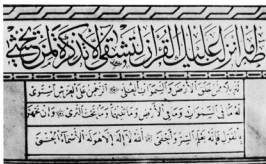 طه ما انزلنا عليك القرآن لتشقى الا تذكرة لمن يخشى
تنزيلا ممن خلق الارض والسموات العلى الرحمن على العرش استوى
له ما فى السموات وما فى الارض وما بينهما وما تحت الثرى وان تجهر
بالقول فانه يعلم السر واخفى الله لا اله الا هو له الاسماء الحسنى